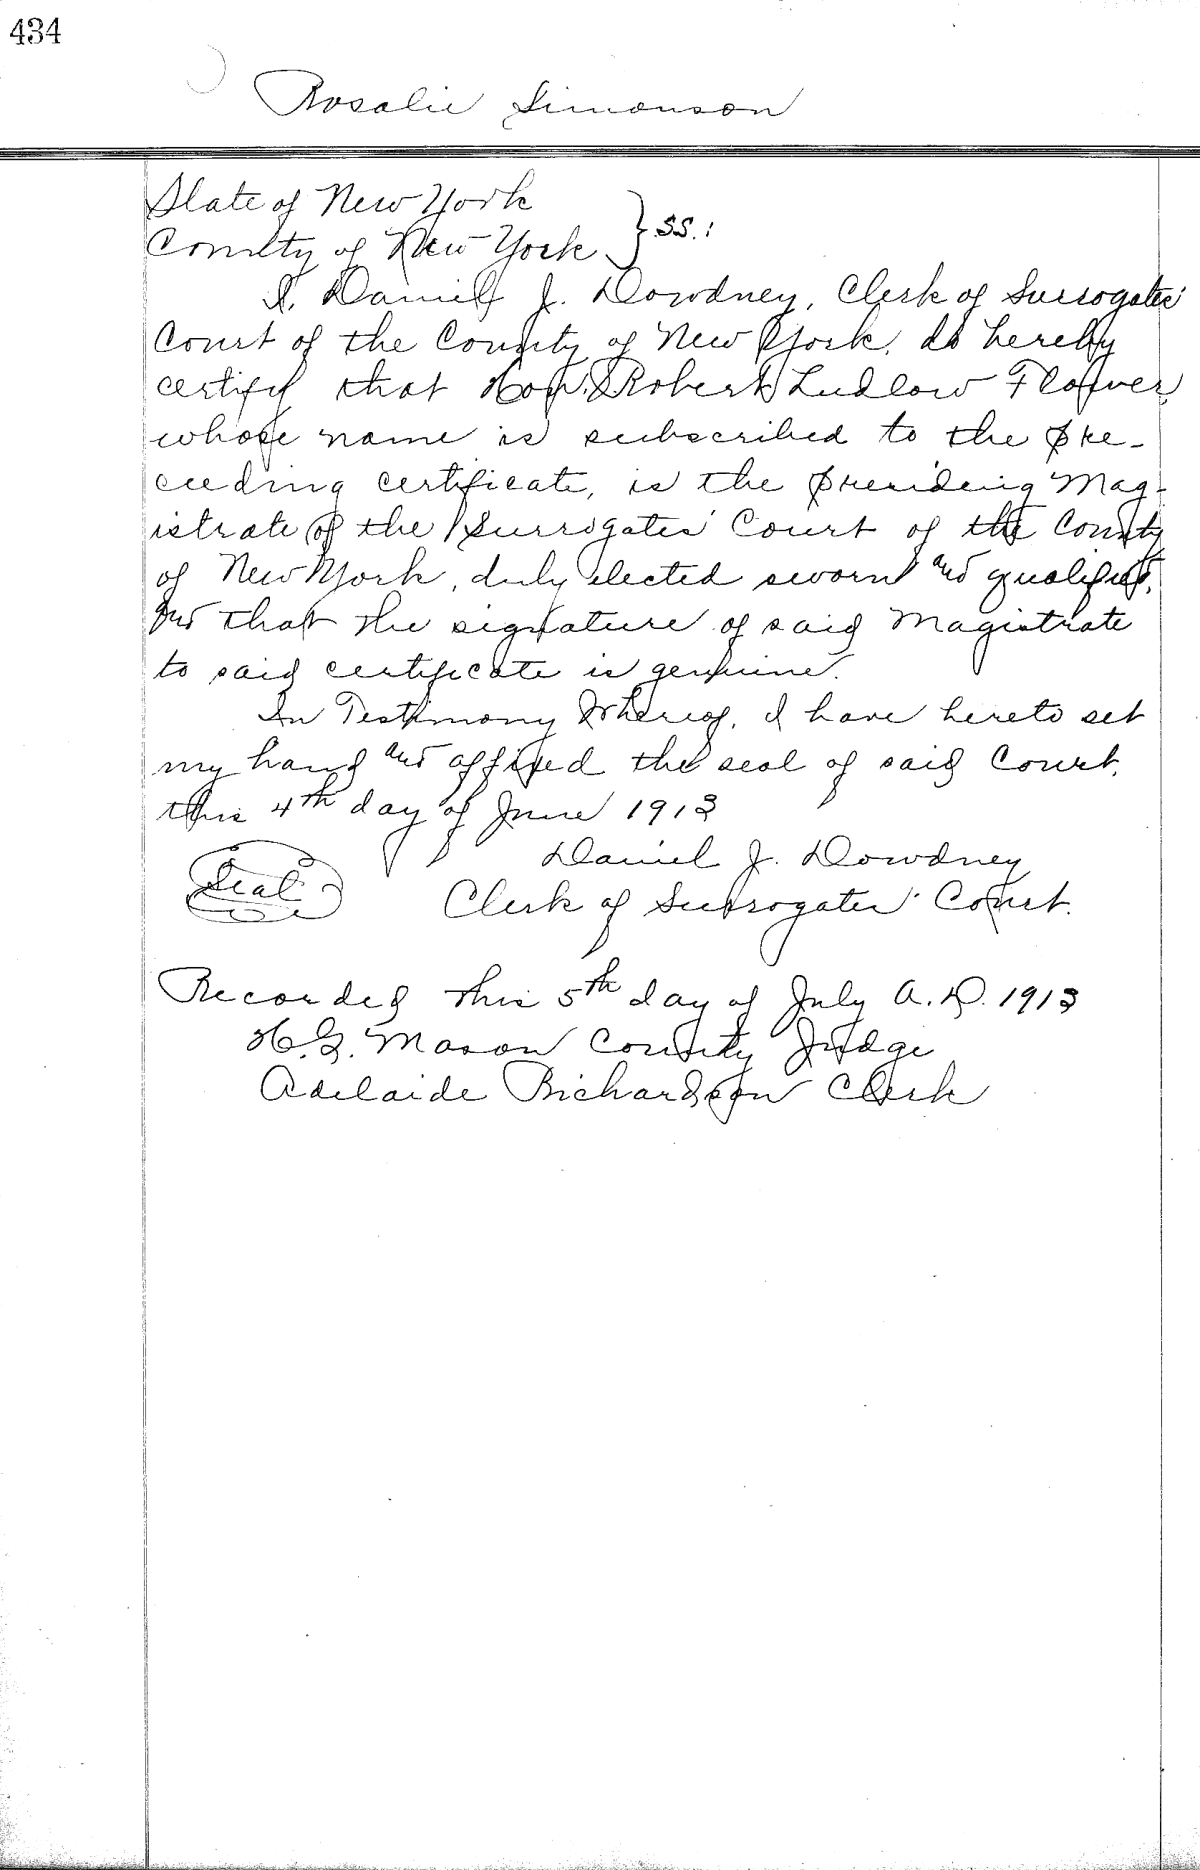 434
Rosalie Simonson
State of New York
County of New York } SS.:
I, Daniel J. Dowdney, Clerk of Surrogates'
Court of the County of New York, do hereby
certify that Hon. Robert Ludlow Flower
whose name is subscribed to the pre-
ceeding certificate, is the presiding Mag-
istrate of the Surrogates' Court of the County
of New York, duly elected sworn and qualified,
and that the signature of said Magistrate
to said certificate is genuine.
In Testimony Whereof, I have hereto set
my hand and affixed the seal of said Court,
this 4th day of June 1913
Daniel J. Dowdney
Seal Clerk of Surrogates' Court.
Recorded this 5th day of July A.D. 1913
H.G. Mason County Judge
Adelaide Richardson Clerk